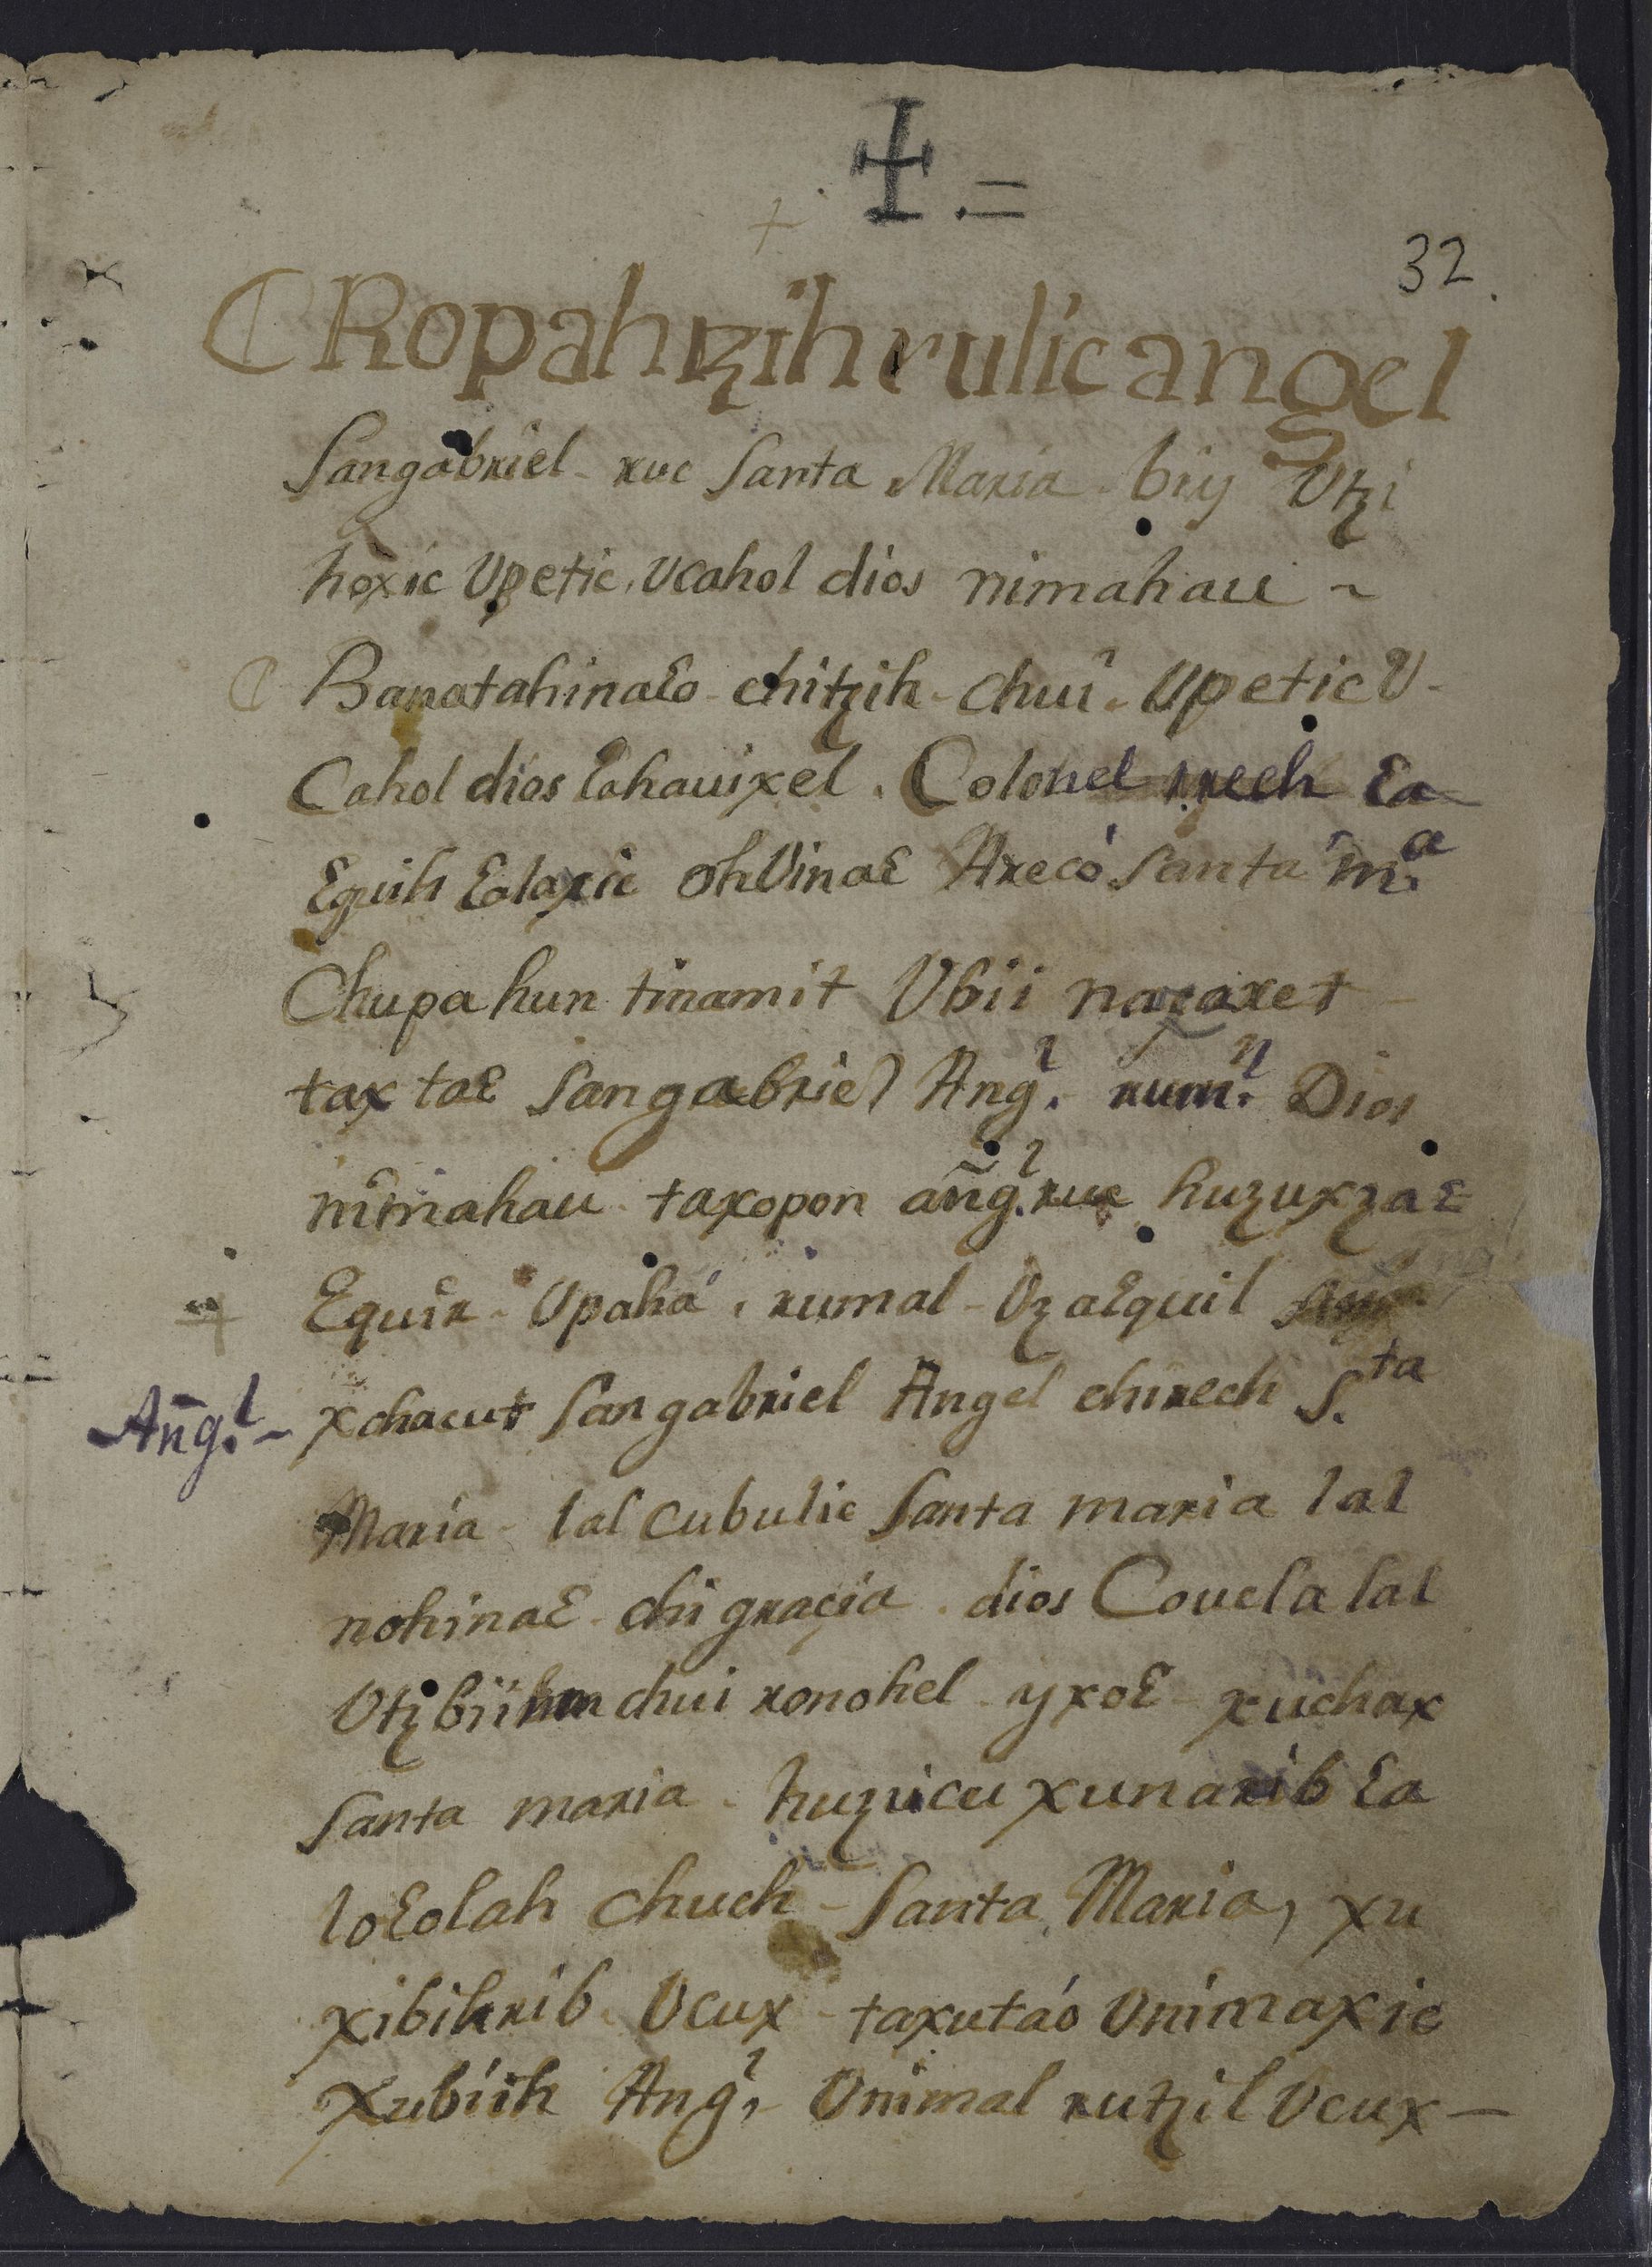 32.
Ropahtzih rulic angel
Sangabriel ruc Santa Maria biy Utzi
hoxic Upetic, Ucahol dios nimahau ~
Banatahinaꜫo chitzih chui. Upetic U-
Cahol dios ꜫahauixel. Colonel rech ꜫa
ꜫquih ꜫalaxic oh Uinaꜫ Arecó Santa m.ᵃ
Chupa hun tinamit Ubii naçaret
tax taꜫ San gabriel Ang.ˡ rum.ˡ Dios
nimahau. taxopon añg.ˡ ruc huzuxzaꜫ
ꜫquir - Upahá, rumal - Uzaꜫquil
Añg.ˡ- xchacut San gabriel Angel chirech S.ᵗᵃ
Maria - lal cubulic Santa maria lal
nohinaꜫ - chi gracia. dios Couela lal
Utzbiih chui ronohel - yxoꜫ - xuchax
Santa maria. huzucu xunarib ꜫa
loꜫolah chuch - Santa Maria, xu
xibihrib. Ucux - taxutáo Unimaxic
Xubiih Ang.ˡ - Unimal rutzil Ucux —